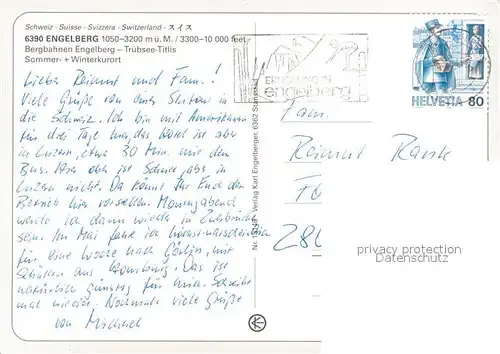 Schweiz · Suisse · Svizzera · Switzerland · スイス
6390 ENGELBERG 1050–3200 m ü. M. / 3300–10 000 feet
Bergbahnen Engelberg – Trübsee-Titlis
Sommer- + Winterkurort
Lieber Raimut und Fam.!
Viele Grüße von einer in
die Schweiz. Ich bin mit Amerikanern
für drei Tage hier, das Hotel ist aber
in Luzern, etwa 30 Min. mit dem
Bus. Hier oben ist Schnee, aber in
Luzern nicht. Da könnt Ihr Euch den
Betrieb hier vorstellen. Montagabend
werde ich dann wieder in Zweibrücken
sein. Im Mai fahre ich höchstwahrscheinlich
für eine Woche nach Görlitz, mit
Schülern aus Homburg. Das ist
natürlich günstig für mich. Schreibe
mal wieder. Nochmals viele Grüße
von Michael
Verlag Karl Engelberger, 6362 Stansstad
ERHOLUNG IN
engelberg
HELVETIA 80
Fam.
Raimut
280
privacy protection
Datenschutz